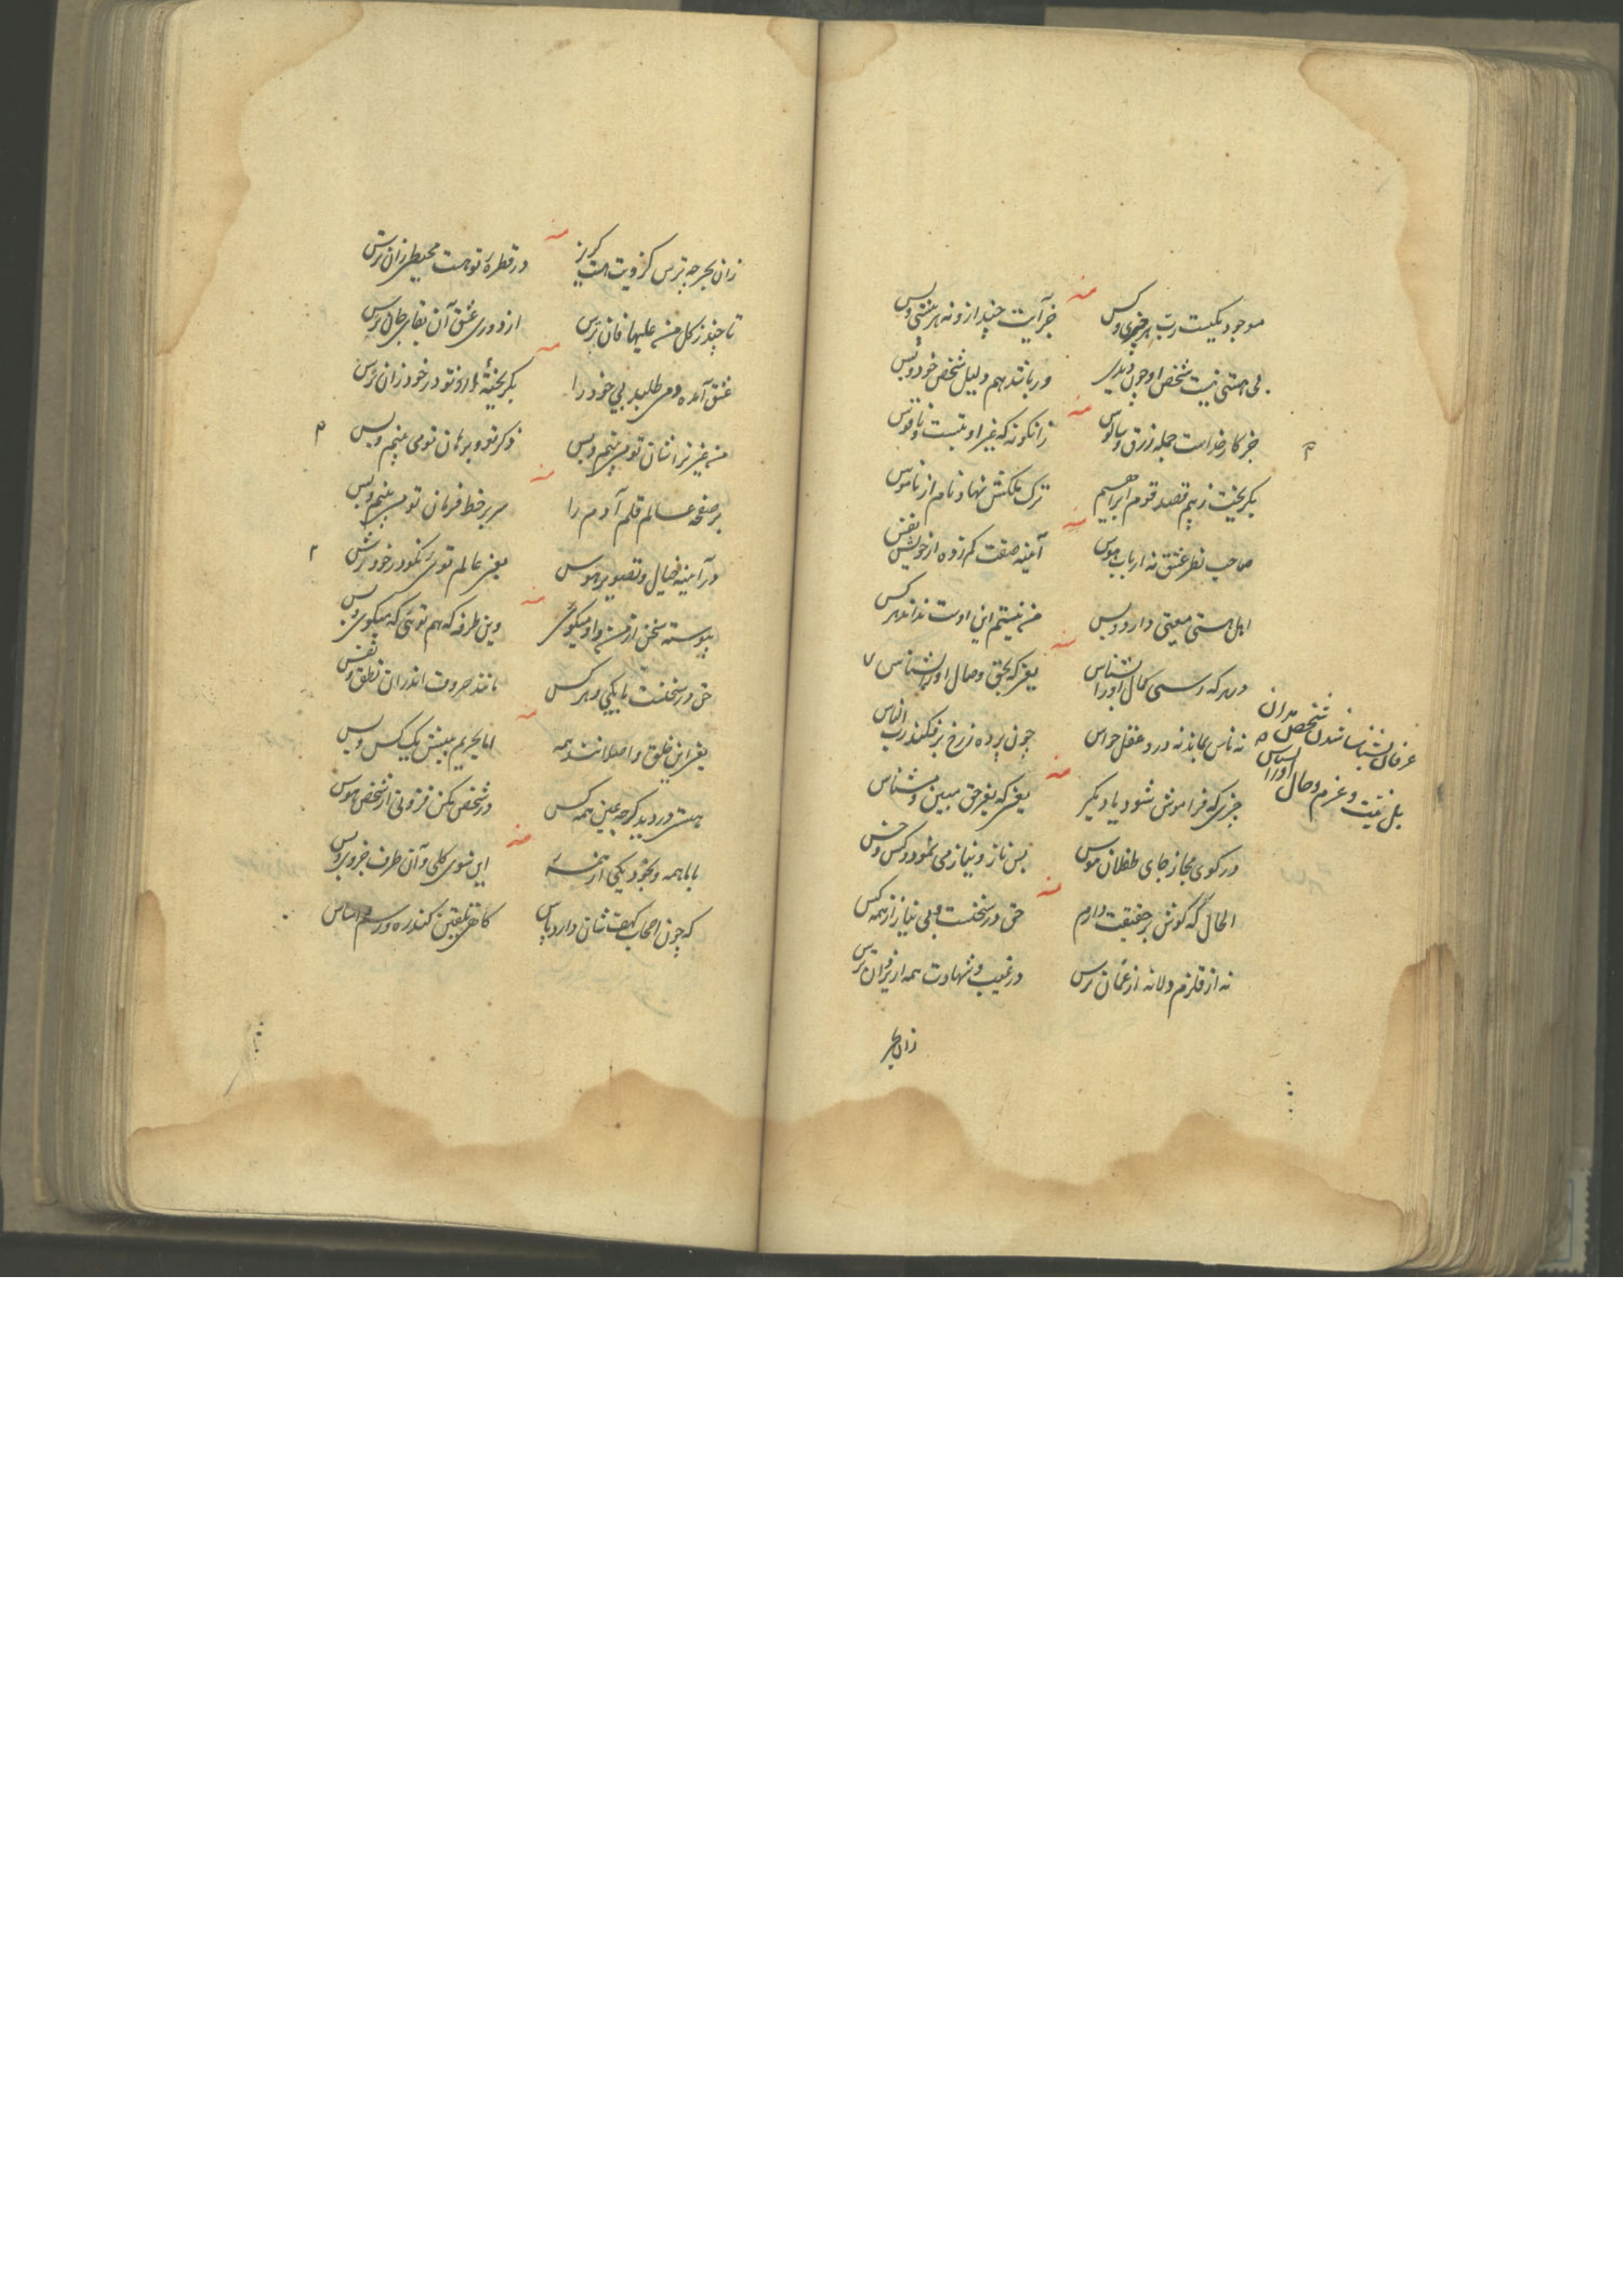 موجود یکیست ربّ هر چیزی و کس
جز آیت چند ازو نه هر هستی و بس
بی هستی نیست شخص او چون دیدی
ور باشد هم دلیل شخص خود و بس
جز کار خداست جمله زرق و سالوس
زانگونه که غیر او نیست و ناقوس
بگریخت ز بیم قصد قوم ابراهیم
ترک ملکش نهاد نام از ناموس
صاحب نظر عشق نه ارباب هوس
آیینه صفت کم زده از خویش نفس
اهل هستی معیتی دارد و بس
من نیستم این اوست نداند هر کس
کمال او را بشناس
یعنی که بحق وصال او را بشناس
نه ناس بماند نه درو عقل حواس
چون پرده ز رخ برفکند رب الناس
چیزی که فراموش شود یاد مگیر
یعنی که بغیر حق مبین و مشناس
در کوی مجاز جای طفلان هوس
بس ناز و نیاز می نمود و کس و خس
الحال که گوش بر حقیقت دارم
حق در سخنست و بی نیاز از همه کس
نه از قلزم و لا نه از عمان ترس
در غیب و شهادت همه از یزدان ترس
زان بحر
عرفان شناسا شدن شخص مدان
بل نیت و عزم و حال او را بشناس
زان بحر چه ترس کزویت هست گریز
در قطرهٔ تو هست محیطی زان ترس
تا چند ز کل من علیها فان ترس
از دوری عشق آن بقای جان ترس
عشق آمده و می طلبد بی خود را
بگریختهٔ ازو تو در خود زان ترس
من غیر ترا نشان تو می بینم و بس
ذکر تو و برهان تو می بینم و بس
بر صفحه عالم قلم آدم را
سر بر خط فرمان تو می بینم و بس
در آینه خیال و تصویر هوس
یعنی عالم توی
پیوسته سخن از من و او میگوئی
وین طرفه که هم توئی که میگوی و بس
حق در سخنست با یکی و هر کس
مانند حروف اندران نطق و نفس
یعنی این خلق و اصلانند همه
اما بحریم بینش یک کس و بس
هستی در دید گرچه عین همه کس
در شخص مکن فزونی از شخص هوس
با با همه و بخود یکی از همهٔ
این سوی کلی و آن طرف جزو و بس
که چون اصحاب کهف شان دارد پاس
گاهی تلقین کند ره و رسم اساس